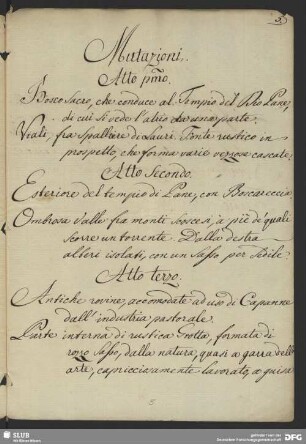 3
Mutazioni.
Atto pmo.
Bosco Sacro, che conduce al Tempio del Dio Pane,
di cui si vede l'atrio da una parte.
Viali, fra Spalliere di Lauri. Fonte rustico in
prospetto, che forma varie vezzose cascate.
Atto Secondo.
Esteriore del tempio di Pane, con Boscareccia
Ombrosa Valle fra monti scoscesi, a piè de quali
scorre un torrente. Dalla destra
alberi isolati, con un Sasso per Sedile.
Atto terzo.
Antiche rovine, accomodate ad uso di Capanne
dall'industria pastorale.
Parte interna di rustica Grotta, formata di
rozo Sasso, dalla natura, quasi a garra dell'
arte, capricciosamente lavorato, a guisa
SLUB
Wir führen Wissen.
gefördert von der
Deutschen Forschungsgemeinschaft
DFG